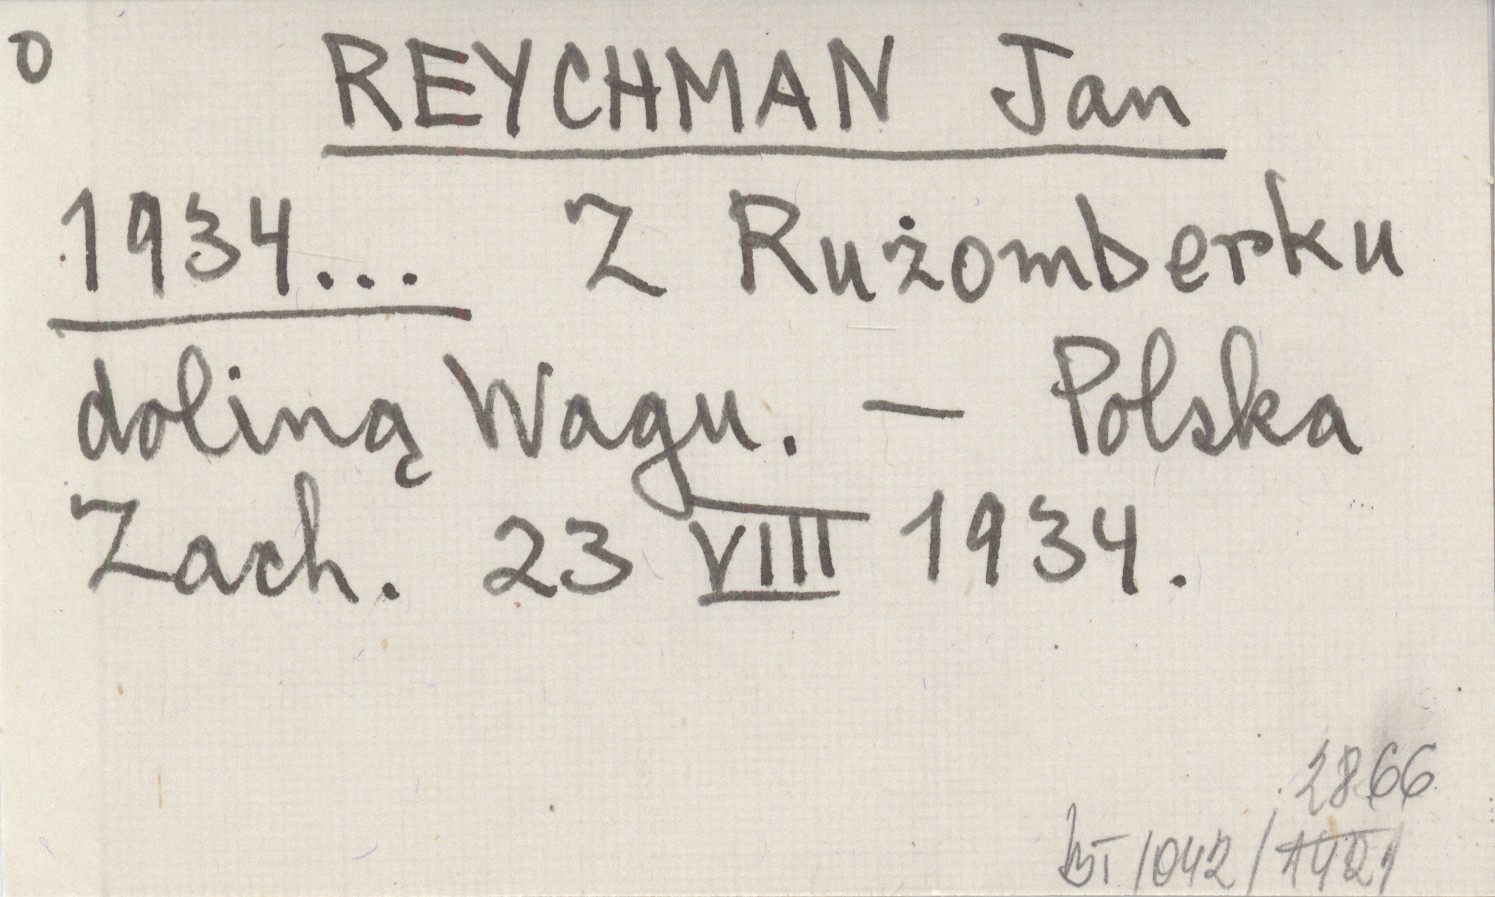 0 REYCHMAN Jan
1934... Z Rużomberku
doliną Wagu. — Polska
Zach. 23 VIII 1934.
2866
/042/